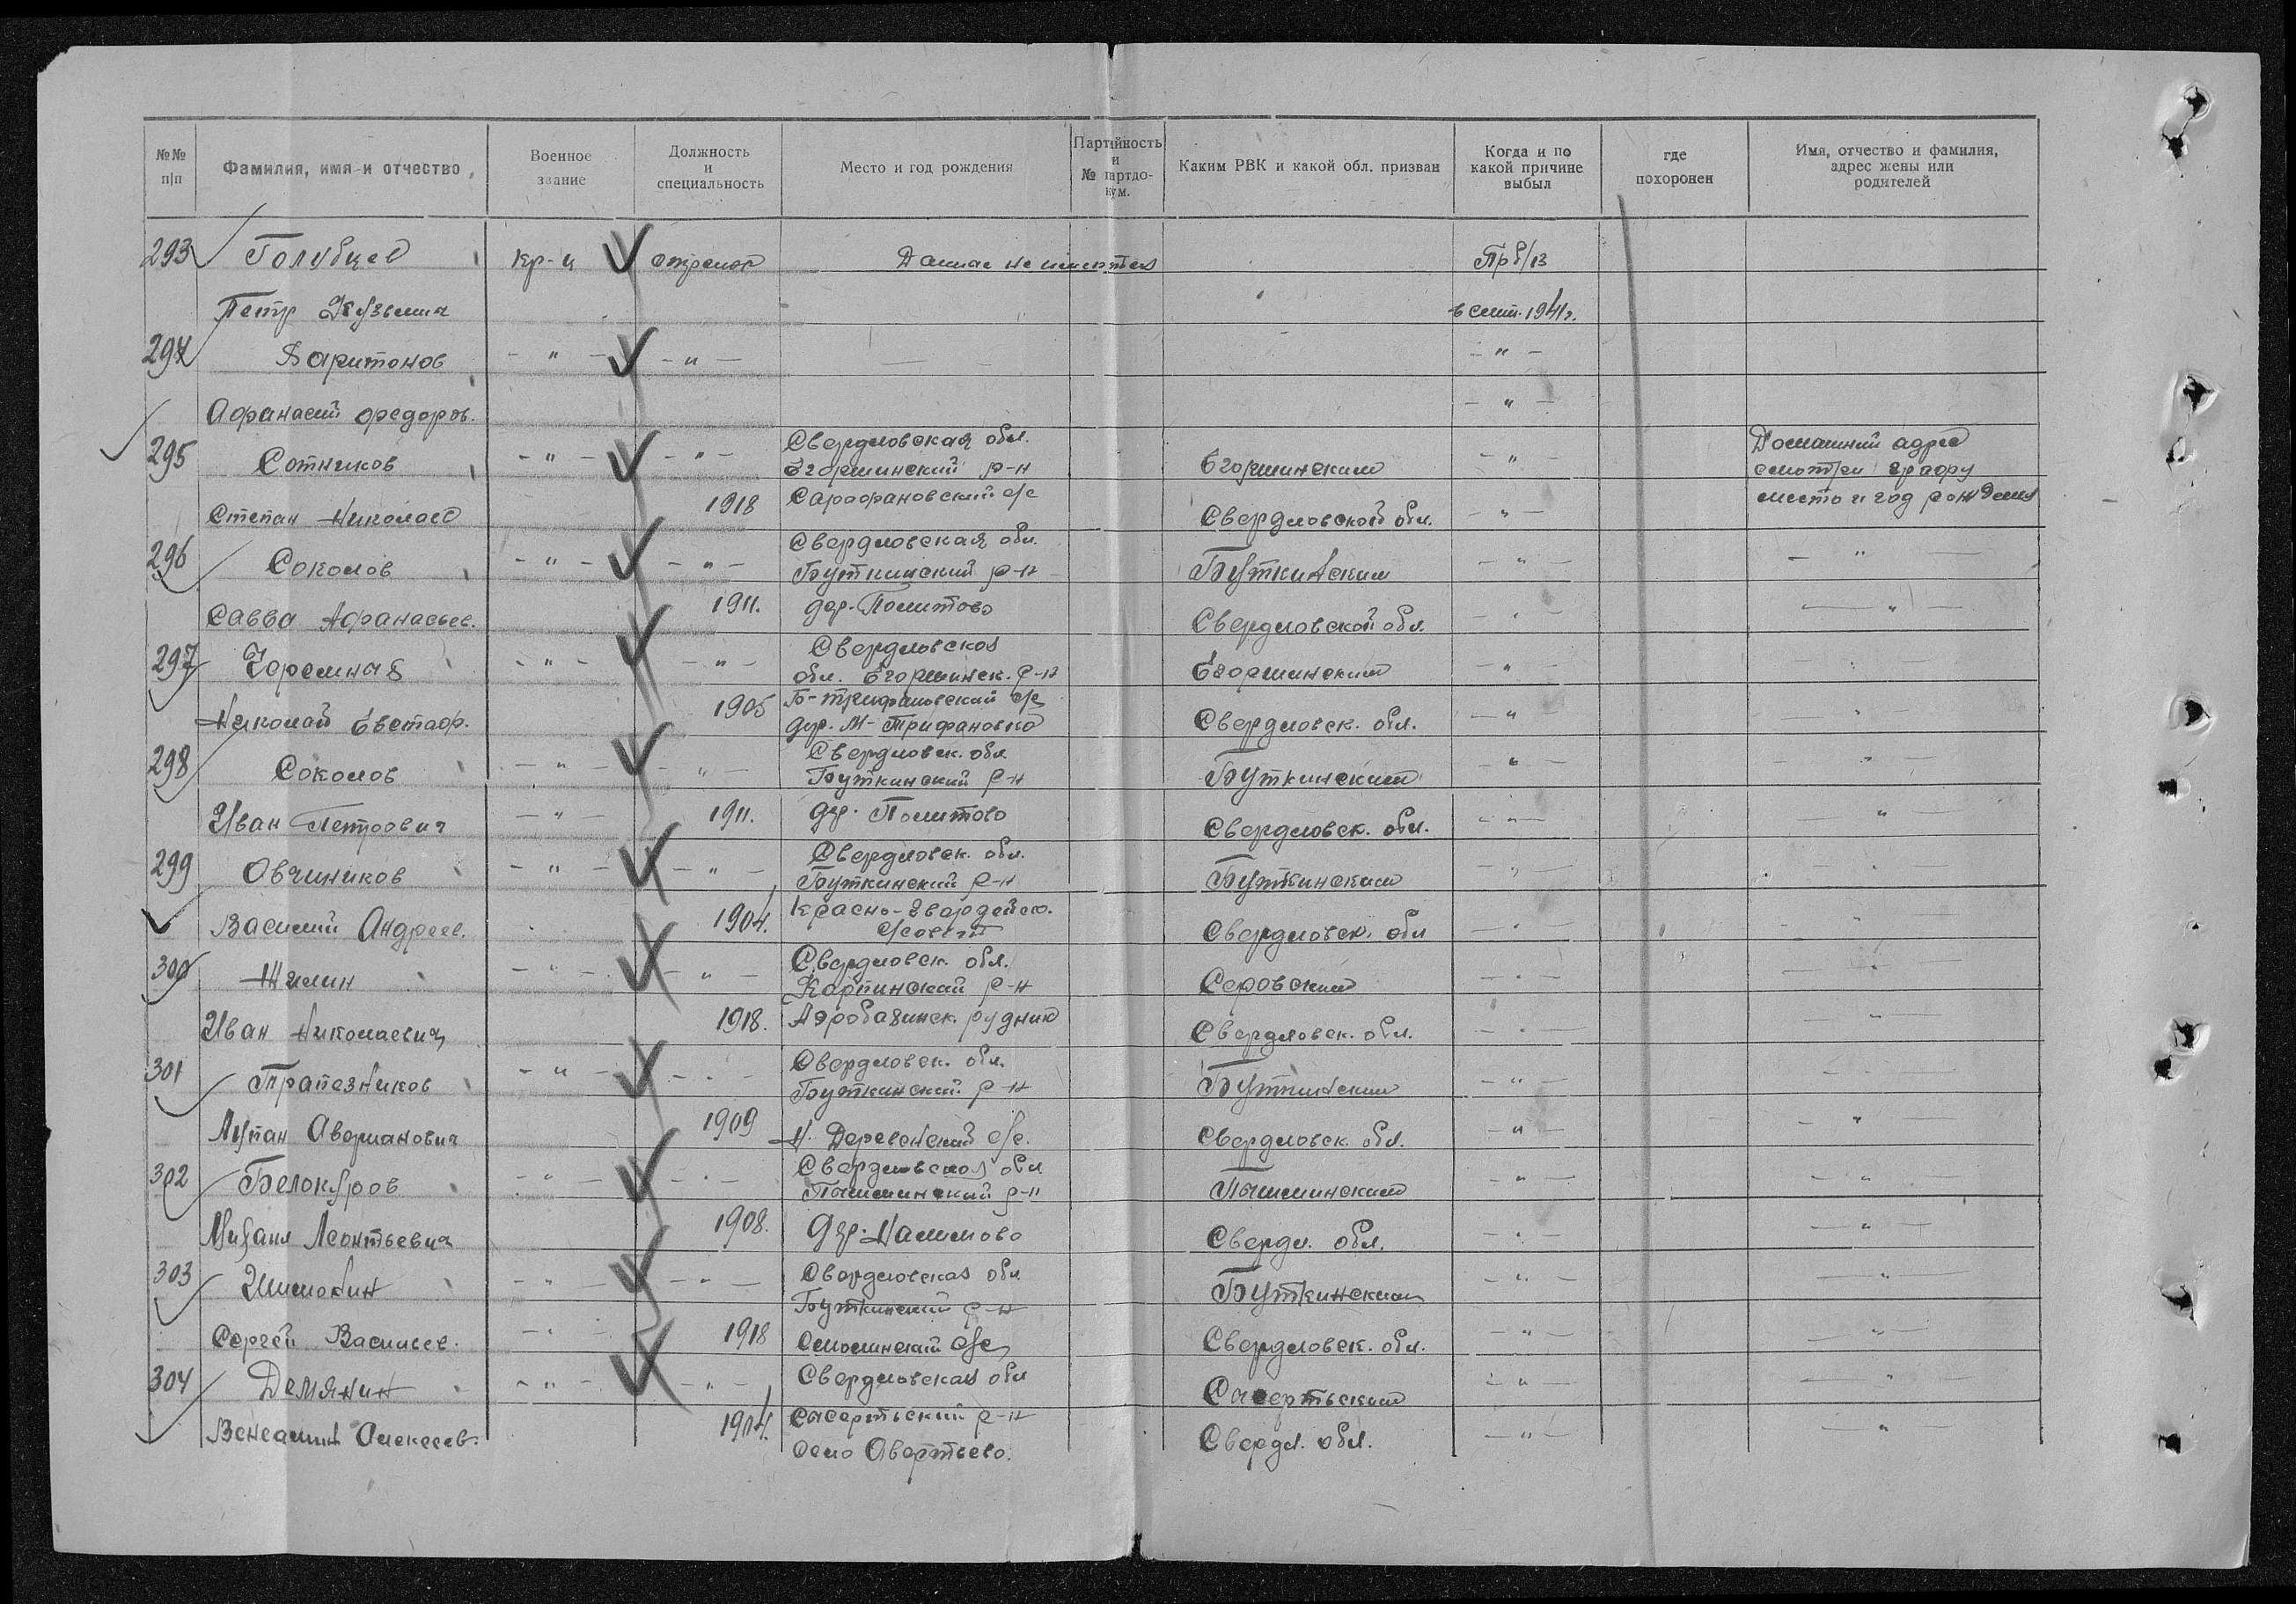 №№ п/п Фамилия, имя и отчество Военное звание Должность и специальность Место и год рождения Партийность и № партдокум. Каким РВК и какой обл. призван Когда и по какой причине выбыл где похоронен Имя, отчество и фамилия, адрес жены или родителей
293 Голубцев кр-ц стрелок Данные не имеются Пр б/в
Петр Кузьмич в сент. 1941 г.
294 Харитонов - " - - " - — - " -
Афанасий Федоров. - " -
295 Сотников - " - - " - Свердловская обл. Егоршинский р-н Егоршинским - " - Домашний адрес смотри графу
Степан Николаев 1918 Сарафановский с/с Свердловской обл. - " - место и год рождения
296 Соколов - " - - " - Свердловская обл. Буткинский р-н Буткинским - " - - " -
Савва Афанасьев. 1911. дер. Политово Свердловской обл. - " - - " -
297 - " - - " - Свердловская обл. Егоршинск. р-н Егоршинским - " - - " -
Николай Евстаф. 1905 Б-Трифановский с/с дер. М-Трифановка Свердловск. обл. - " - - " -
298 Соколов - " - - " - Свердловск. обл. Буткинский р-н Буткинским - " - - " -
Иван Петрович - " - 1911. дер. Политово Свердловск. обл. - " - - " -
299 Овчиников - " - - " - Свердловск. обл. Буткинский р-н Буткинским - " - - " -
Василий Андреев. 1904. Красно-гвардейск. с/совет Свердловск. обл - " - - " -
300 Жилин - " - - " - Свердловск. обл. Карпинский р-н Серовским - " - - " -
Иван Николаевич 1918. рудник Свердловск. обл. - " - - " -
301 Трапезников - " - - " - Свердловск. обл. Буткинский р-н Буткинским - " - - " -
Лупан Аверианович 1909 Н. Деревенский с/с. Свердловск. обл. - " - - " -
302 Белокуров - " - - " - Свердловская обл Пышминский р-н Пышминским - " - - " -
Михаил Леонтьевич 1908. Дер. Налимово Свердл. обл. - " - - " -
303 - " - - " - Свердловская обл Буткинский р-н Буткинским - " - - " -
Сергей Васильев. - " - 1918 Смолинский с/с Свердловск. обл. - " - - " -
304 Демянин - " - - " - Свердловская обл Сысертский р-н Сысертьским - " - - " -
Венеамин Алексеев. 1904. село Авертьево. Свердл. обл. - " - - " -